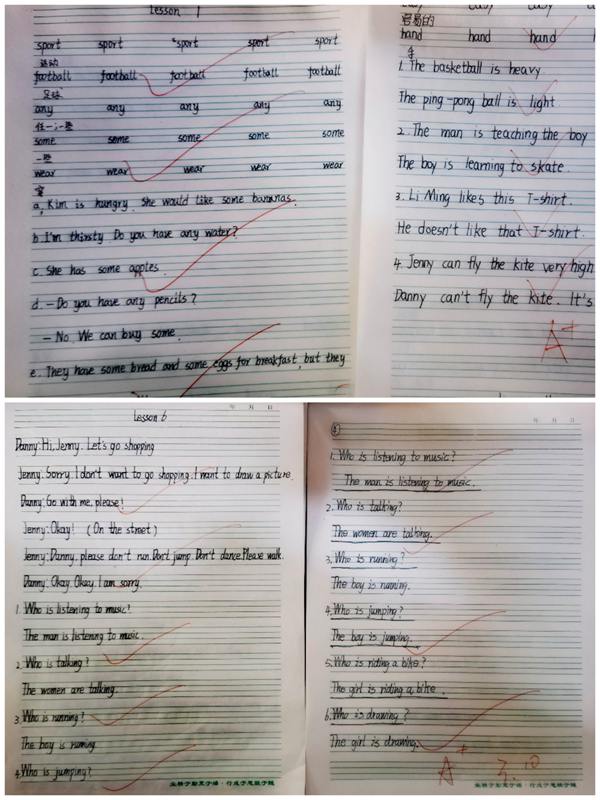 Lesson 1
sport sport sport sport sport
运动
football football football football football
足球
any any any any any
任一;一些
some some some some some
一些
wear wear wear wear wear
穿
a. Kim is hungry. She would like some bananas.
b. I'm thirsty. Do you have any water?
c. She has some apples.
d. - Do you have any pencils?
- No. We can buy some.
e. They have some bread and some eggs for breakfast, but they
easy easy easy
容易的
hand hand hand hand
手
1. The basketball is heavy
The ping-pong ball is light
2. The man is teaching the boy
The boy is learning to skate.
3. Li Ming likes this T-shirt.
He doesn't like that T-shirt.
4. Jenny can fly the kite very high
Danny can't fly the kite. It's
A+
年 月 日
Lesson 6
Danny: Hi, Jenny. Let's go shopping
Jenny: Sorry. I don't want to go shopping. I want to draw a picture.
Danny: Go with me, please!
Jenny: Okay! (On the street)
Jenny: Danny, please don't run. Don't jump. Don't dance. Please walk.
Danny: Okay. Okay. I am sorry.
1. Who is listening to music?
The man is listening to music.
2. Who is talking?
The women are talking.
3. Who is running?
The boy is running.
4. Who is jumping?
业精于勤荒于嬉·行成于思毁于随
年 月 日
1. Who is listening to music?
The man is listening to music.
2. Who is talking?
The women are talking.
3. Who is running?
The boy is running.
4. Who is jumping?
The boy is jumping.
5. Who is riding a bike?
The girl is riding a bike.
6. Who is drawing?
The girl is drawing.
A+ 3.10
业精于勤荒于嬉·行成于思毁于随